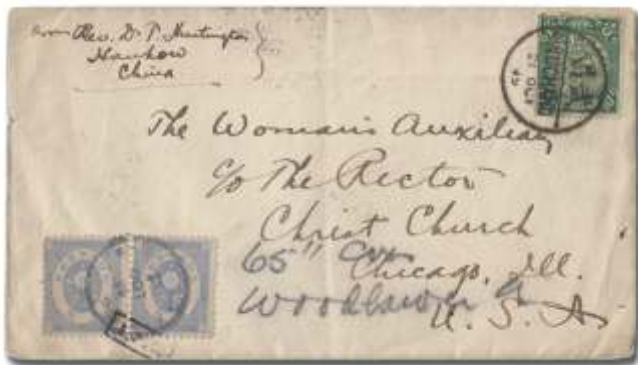 from Rev. D. T. Huntington
Hankow
China
The Woman's Auxiliary
c/o The Rector
Christ Church
65"
Chicago, Ill.
Woodlawn
U. S. A